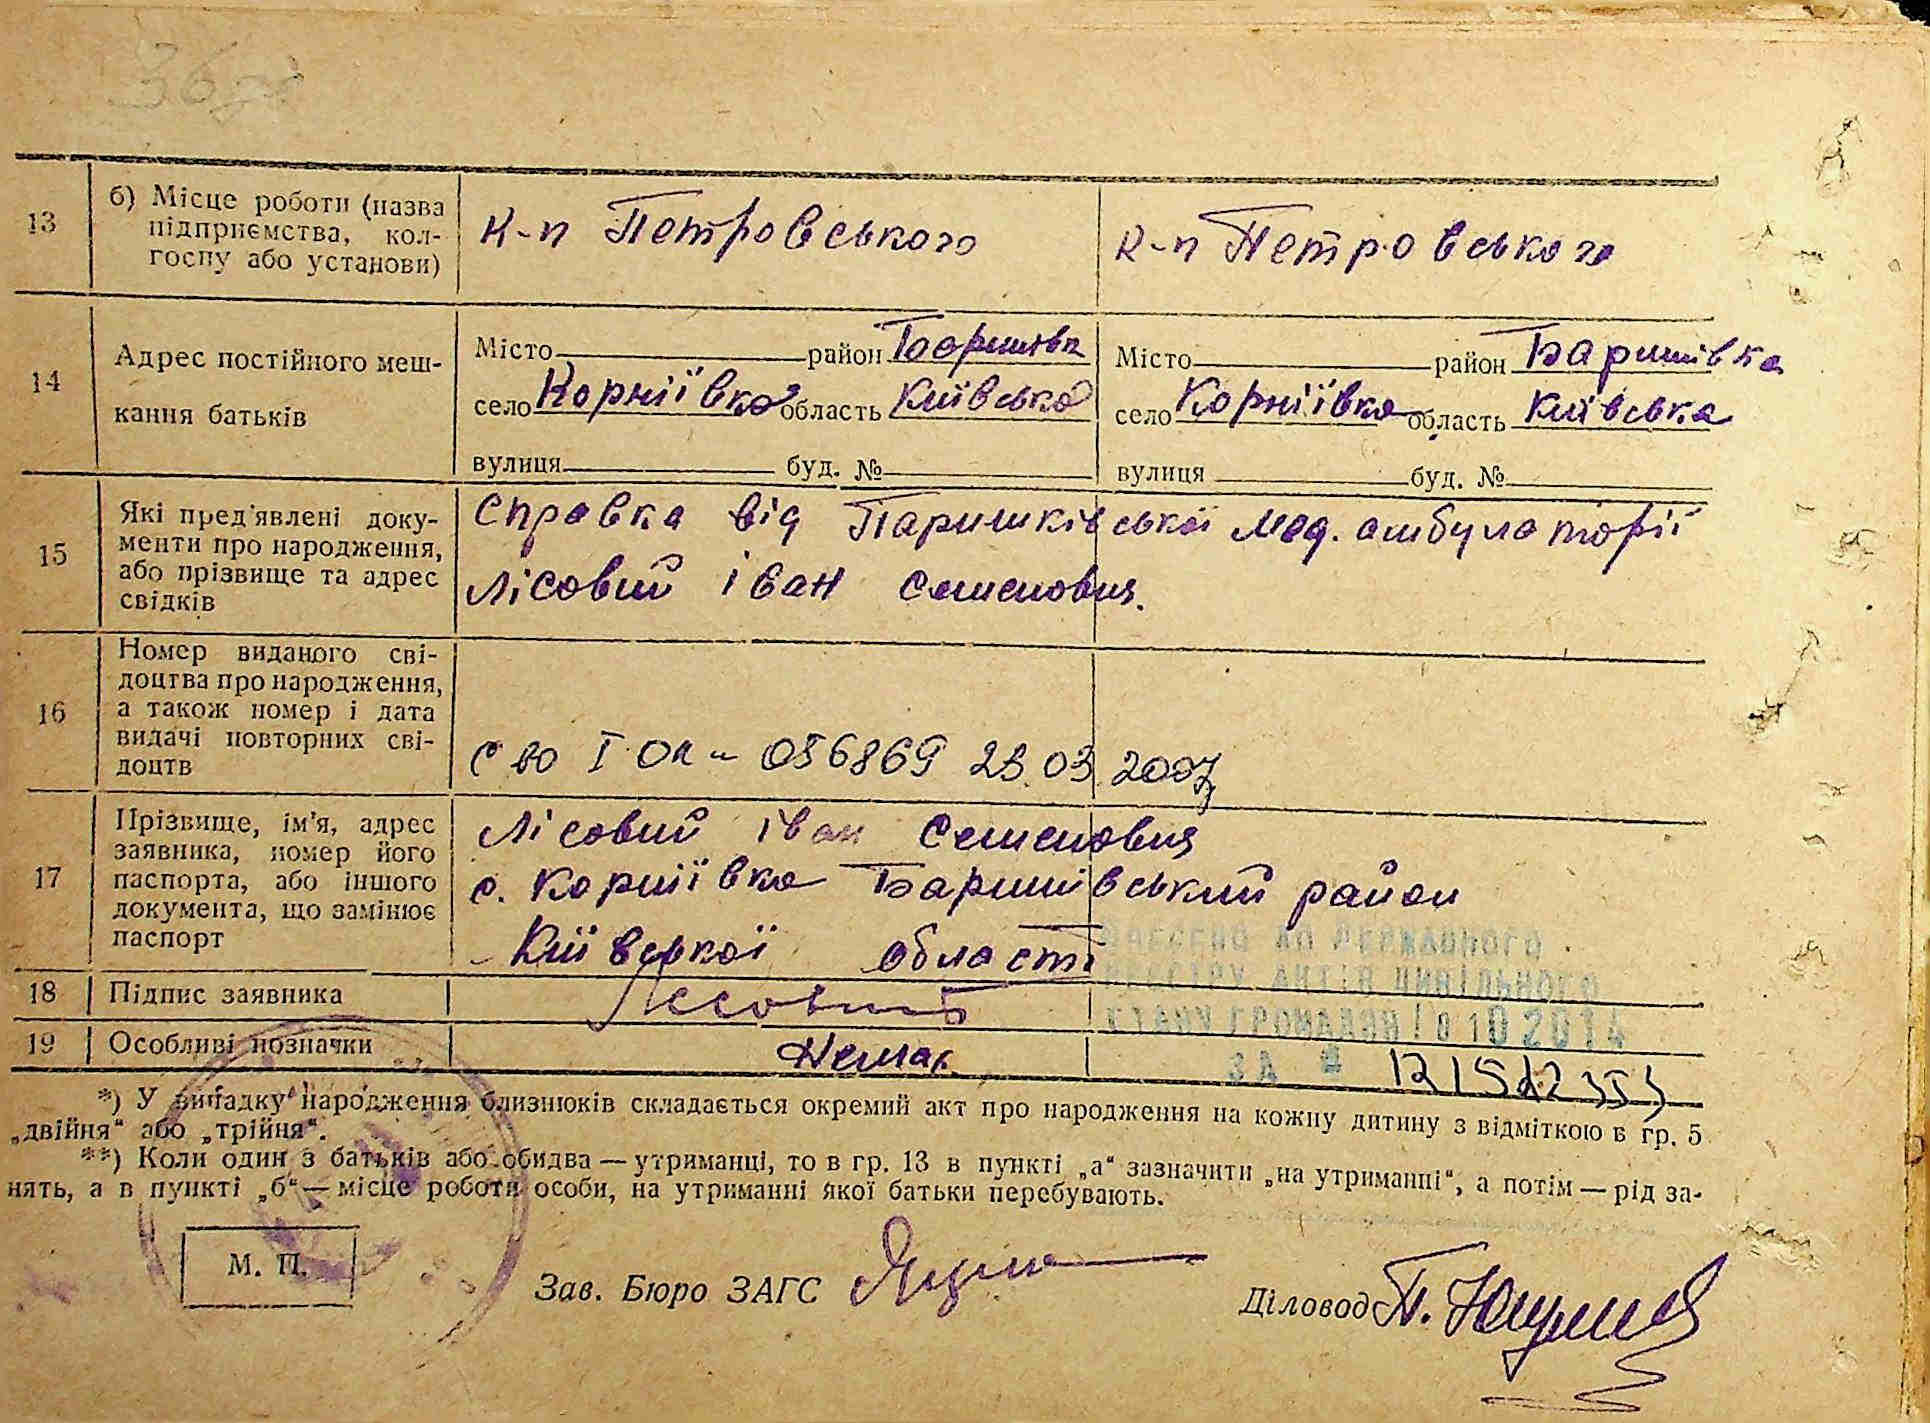 13 б) Місце роботи (назва підприємства, колгоспу або установи)
к-п Петровського
к-п Петровського
14 Адрес постійного мешкання батьків
Місто район Баришівка
село Корніївка область Київська
вулиця буд. №
Місто район Баришівка
село Корніївка область Київська
вулиця буд. №
15 Які пред'явлені документи про народження, або прізвище та адрес свідків
Справка від Паришківської мед. амбулаторії
Лісовий Іван Семенович.
16 Номер виданого свідоцтва про народження, а також номер і дата видачі повторних свідоцтв
с во І ОК - 056869 23.03.2007
17 Прізвище, ім'я, адрес заявника, номер його паспорта, або іншого документа, що замінює паспорт
Лісовий Іван Семенович
с. Корніївка Баришівський район
Київської області
18 Підпис заявника
19 Особливі позначки
Немає
ВНЕСЕНО ДО ДЕРЖАВНОГО
РЕЄСТРУ АКТІВ ЦИВІЛЬНОГО
СТАНУ ГРОМАДЯН 10 2014
ЗА №
*) У випадку народження близнюків складається окремий акт про народження на кожну дитину з відміткою в гр. 5
„двійня“ або „трійня“.
**) Коли один з батьків або обидва — утриманці, то в гр. 13 в пункті „а“ зазначити „на утриманні“, а потім — рід за-
нять, а в пункті „б“ — місце роботи особи, на утриманні якої батьки перебувають.
М. П.
Зав. Бюро ЗАГС
Діловод